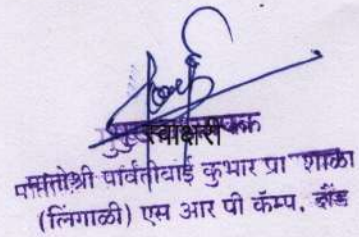 स्वाक्षरी
मातोश्री पार्वतीबाई कुंभार प्रा शाळा
(लिंगाळी) एस आर पी कॅम्प, दौंड